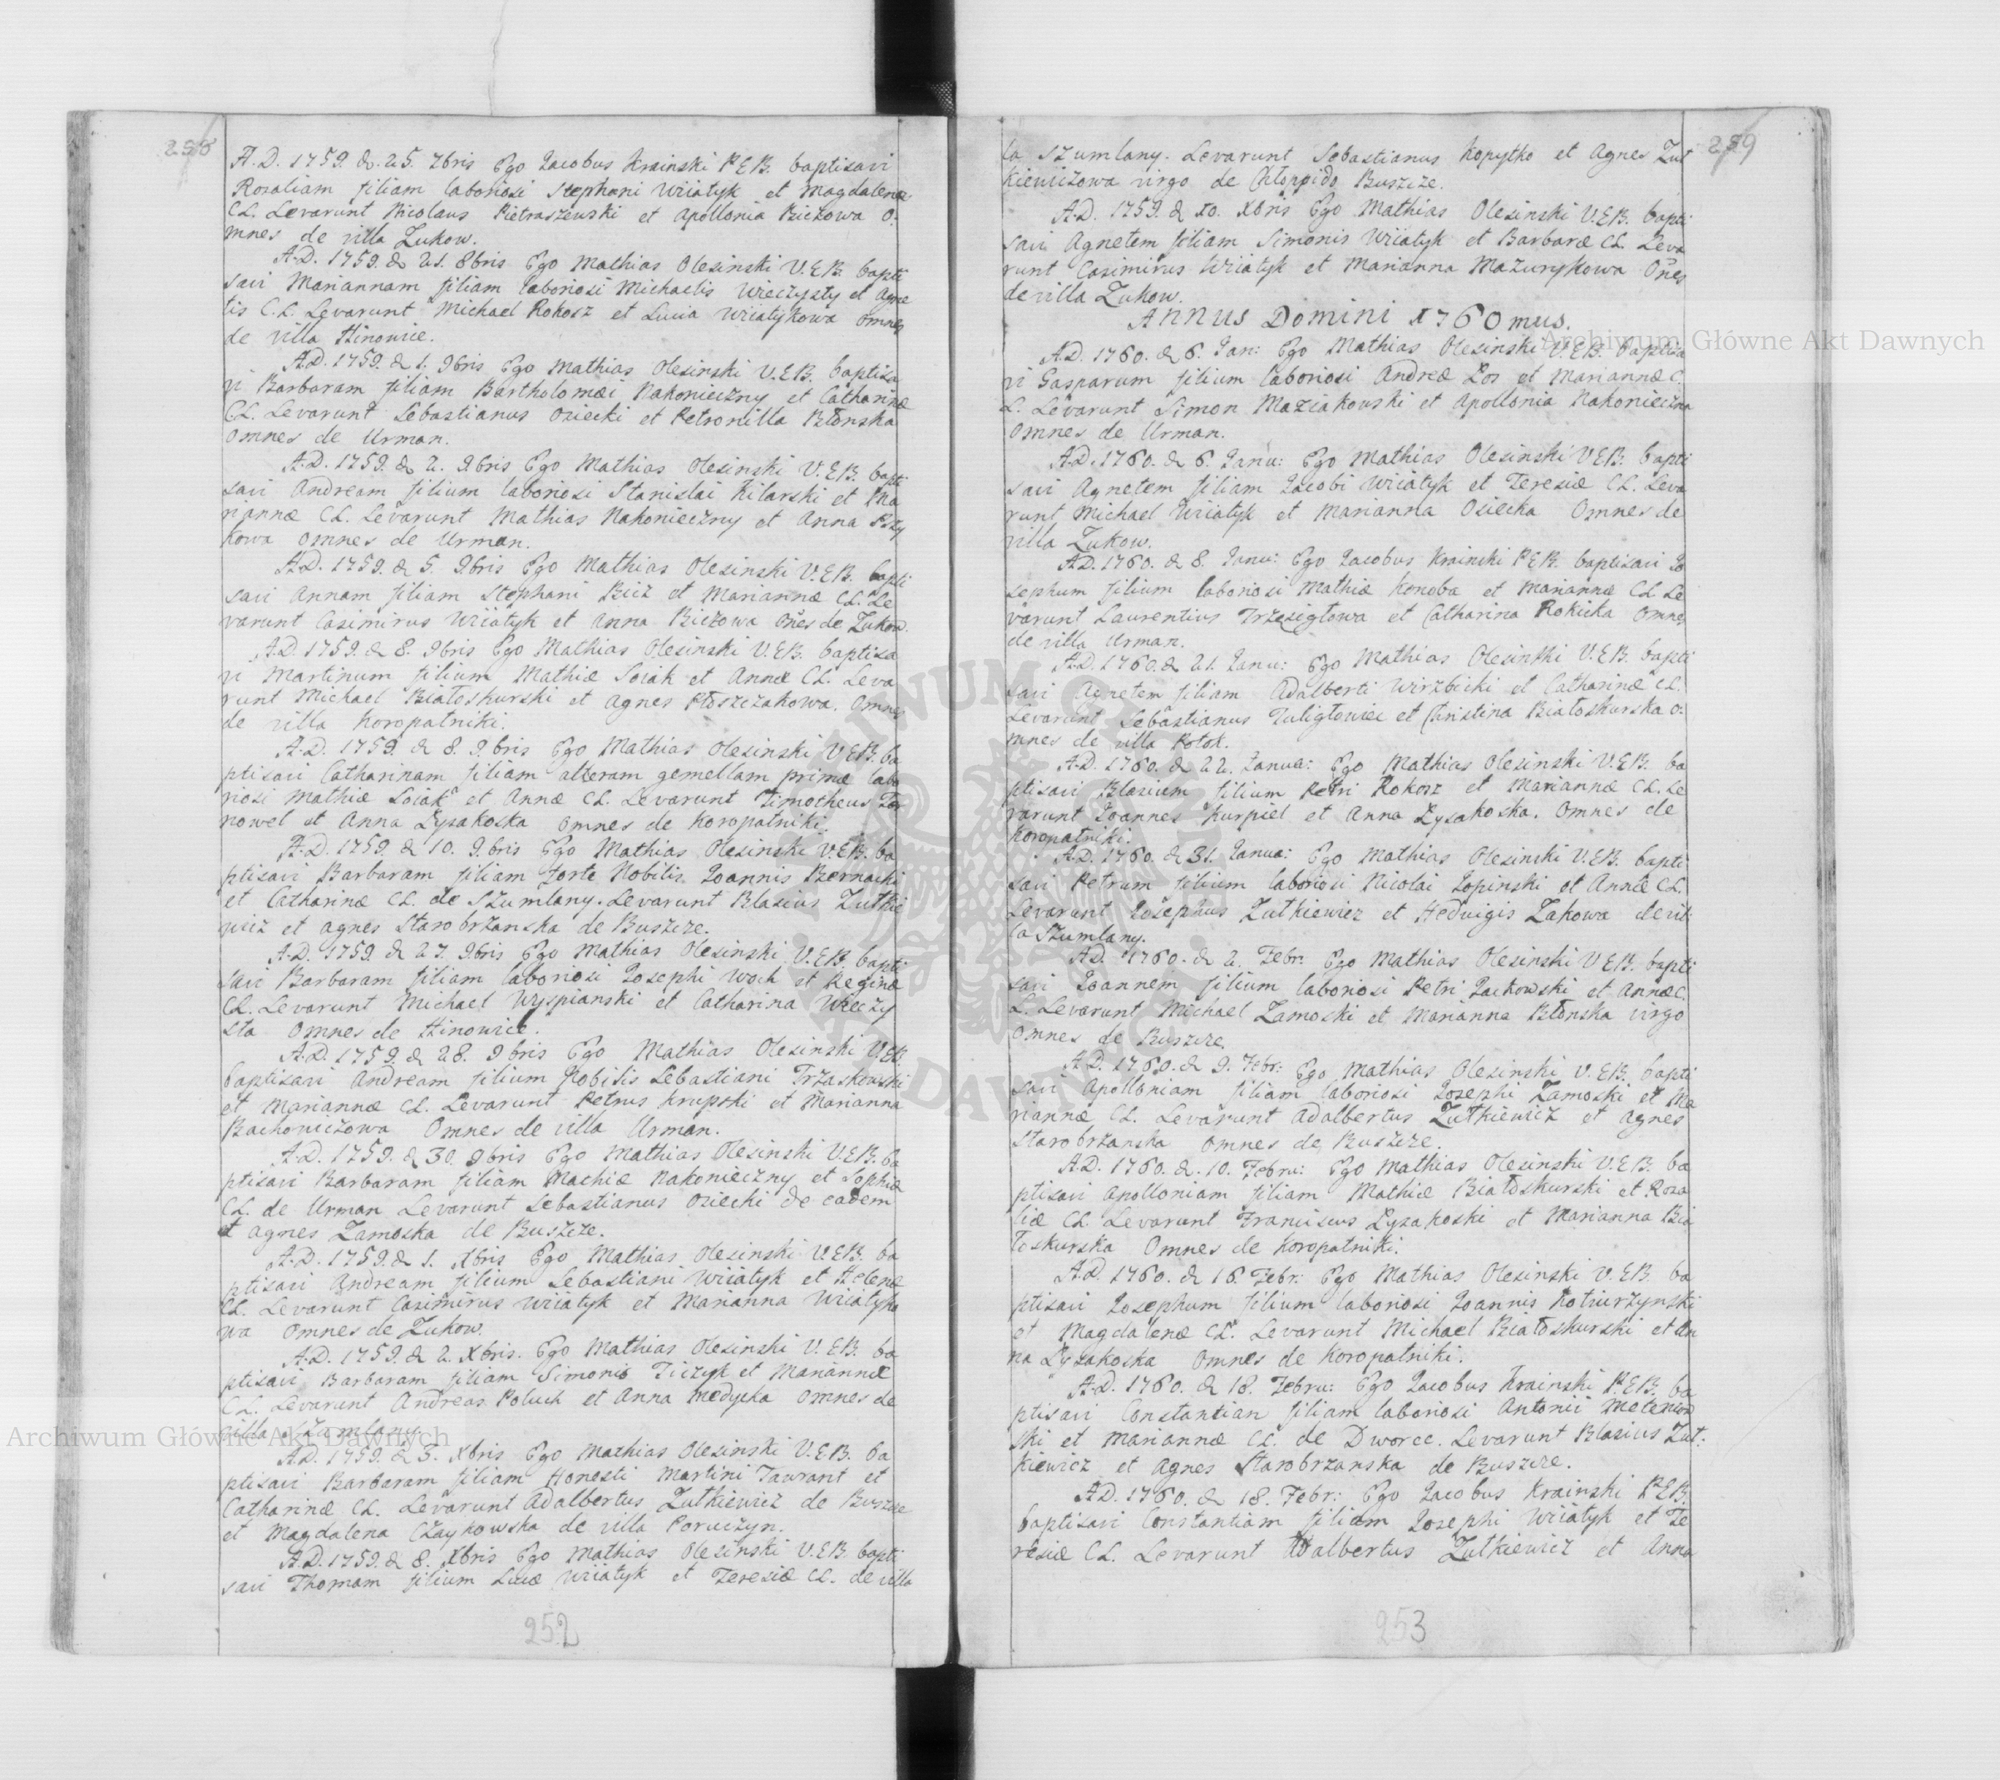 258
A.D. 1759. d. 25. 7bris Ego Jacobus Krainski P.E.B. baptisavi
Rosaliam filiam laboriosi Stephani Wiiatyk et Magdalenæ
CL. Levarunt Nicolaus Pietraszewski et Apollonia Biczowa o:
mnes de villa Zukow.
A.D. 1759. d. 21. 8bris Ego Mathias Olesinski V.E.B. bapti
savi Mariannam filiam laboriosi Michaelis Wieczysty et Agne
tis C.L. Levarunt Michael Rokosz et Lucia Wiatykowa omnes
de villa Hinowice.
A.D. 1759. d. 1. 9bris Ego Mathias Olesinski V.E.B. baptisa
vi Barbaram filiam Bartholomæi Nakonieczny et Catharinæ
CL. Levarunt Sebastianus Osiecki et Petronilla Błonska
omnes de Urman.
A.D. 1759. d. 2. 9bris Ego Mathias Olesinski V.E.B. bapti
savi Andream filium laboriosi Stanislai Kilarski et Ma
riannæ CL. Levarunt Mathias Nakonieczny et Anna
kowa omnes de Urman.
A.D. 1759. d. 5. 9bris Ego Mathias Olesinski V.E.B. bapti
savi Annam filiam Stephani Bicz et Mariannæ CL. Le
varunt Casimirus Wiiatyk et Anna Biczowa Oñes de Zukow.
A.D. 1759. d. 8. 9bris Ego Mathias Olesinski V.E.B. baptisa
vi Martinum filium Mathiæ Soiak et Annæ CL. Leva
runt Michael Białoskurski et Agnes Płoszczakowa. Omnes
de villa Koropatniki.
A.D. 1759. d. 8. 9.bris Ego Mathias Olesinski V.E.B. ba
ptisavi Catharinam filiam alteram gemellam primæ labo
riosi Mathiæ Soiak et Annæ CL. Levarunt Timotheus
nowel et Anna Lysakoska omnes de Koropatniki.
A.D. 1759. d. 10. 9.bris Ego Mathias Olesinski V.E.B. ba
ptisavi Barbaram filiam forte Nobilis Joannis Biernacki
et Catharinæ CL. de Szumlany. Levarunt Blasius Zutkie
wicz et Agnes Starobrzanska de Buszcze.
A.D. 1759. d. 27. 9bris Ego Mathias Olesinski V.E.B. bapti
savi Barbaram filiam laboriosi Josephi Woch et Reginæ
CL. Levarunt Michael Wyspianski et Catharina Wieczy
sta omnes de Hinowice.
A.D. 1759. d. 28. 9bris Ego Mathias Olesinski V.E.B.
baptisavi Andream filium Nobilis Sebastiani Trzaskowski
et Mariannæ CL. Levarunt Petrus Krupski et Marianna
Bachoniczowa Omnes de villa Urman.
A.D. 1759. d. 30. 9bris Ego Mathias Olesinski V.E.B. ba
ptisavi Barbaram filiam Mathiæ Nakonieczny et Sophiæ
CL. de Urman Levarunt Sebastianus Osiecki de eadem
et Agnes Zamoska de Buszcze.
A.D. 1759. d. 1. Xbris Ego Mathias Olesinski V.E.B. ba
ptisavi Andream filium Sebastiani Wiiatyk et Helenæ
CL. Levarunt Casimirus Wiiatyk et Marianna Wiiatyko
wa omnes de Zukow.
A.D. 1759. d. 2. Xbris. Ego Mathias Olesinski V.E.B. ba
ptisavi Barbaram filiam Simonis Ticzyk et Mariannæ
CL. Levarunt Andreas Poluch et Anna Medycka omnes de
villa Szumlany.
A.D. 1759. d. 3. Xbris Ego Mathias Olesinski V.E.B. ba
ptisavi Barbaram filiam Honesti Martini Jawrant et
Catharinæ CL. Levarunt Adalbertus Zutkiewicz de Buszcze
et Magdalena Czaykowska de villa Poruczyn.
A.D. 1759. d. 8. Xbris Ego Mathias Olesinski V.E.B. bapti
savi Thomam filium Lucæ Wiiatyk et Teresiæ CL. de vil
252
259
la Szumlany. Levarunt Sebastianus Kopytko et Agnes Zut
kiewiczowa virgo de Buszcze.
A.D. 1759. d. 10. Xbris Ego Mathias Olesinski V.E.B. bapti
savi Agnetem filiam Simonis Wiiatyk et Barbaræ CL. Leva
runt Casimirus Wiiatyk et Marianna Mazurykowa Oñes
de villa Zukow.
Annus Domini 1760mus.
A.D. 1760. d. 6. Jan: Ego Mathias Olesinski V.E.B. baptisa
vi Gasparum filium laboriosi Andreæ Los et Mariannæ C.
L. Levarunt Simon Maziakowski et Apollonia Nakonieczna
omnes de Urman.
A.D. 1760. d. 6. Janu: Ego Mathias Olesinski V.E.B. bapti
savi Agnetem filiam Jacobi Wiiatyk et Teresiæ CL. Leva
runt Michael Wiiatyk et Marianna Osiecka Omnes de
villa Zukow.
A.D. 1760. d. 8. Janu: Ego Jacobus Krainski P.E.B. baptisavi Jo
sephum filium laboriosi Mathiæ Konoba et Mariannæ CL Le
varunt Laurentius Trzesigłowa et Catharina Rokicka omnes
de villa Urman.
A.D. 1760. d. 21. Janu: Ego Mathias Olesinski V.E.B. bapti
savi Agnetem filiam Adalberti Wirzbicki et Catharinæ CL.
Levarunt Sebastianus Tuligłowicz et Christina Białoskurska o:
mnes de villa Potok.
A.D. 1760. d. 22. Janua: Ego Mathias Olesinski V.E.B. ba
ptisavi Blasium filium Petri Rokosz et Mariannæ CL. Le
varunt Joannes Kurpiel et Anna Lysakoska. Omnes de
Koropatniki.
A.D. 1760. d. 31. Janua: Ego Mathias Olesinski V.E.B. bapti
savi Petrum filium laboriosi Nicolai Lopinski et Annæ CL.
Levarunt Josephus Zutkiewicz et Hedvigis Zakowa de vil
la Szumlany.
A.D. 1760. d. 2. Febr: Ego Mathias Olesinski V.E.B. bapti
savi Joannem filium laboriosi Petri Jackowski et Annæ C.
L. Levarunt Michael Zamoski et Marianna Błonska virgo
omnes de Buszcze.
A.D. 1760. d. 9. Febr: Ego Mathias Olesinski V.E.B. bapti
savi Apolloniam filiam laboriosi Josephi Zamoski et Ma
riannæ CL. Levarunt Adalbertus Zutkiewicz et Agnes
Starobrzanska omnes de Buszcze.
A.D. 1760. d. 10. Febru: Ego Mathias Olesinski V.E.B. ba
ptisavi Apolloniam filiam Mathiæ Białoskurski et Rosa
liæ CL. Levarunt Franciscus Lysakoski et Marianna Bia
łoskurska Omnes de Koropatniki.
A.D. 1760. d. 16. Febr: Ego Mathias Olesinski V.E.B. ba
ptisavi Josephum filium laboriosi Joannis Kotwrzynski
et Magdalenæ CL. Levarunt Michael Białoskurski et An
na Lysakoska omnes de Koropatniki.
A.D. 1760. d. 18. Febru: Ego Jacobus Krainski P.E.B. ba
ptisavi Constantian filiam laboriosi Antonii
ski et Mariannæ CL. de Dworce. Levarunt Blasius Zut:
kiewicz et Agnes Starobrzanska de Buszcze.
A.D. 1760. d. 18. Febr: Ego Jacobus Krainski P.E.B.
baptisavi Constantiam filiam Josephi Wiiatyk et Te
resiæ CL. Levarunt Adalbertus Zutkiewicz et Anna
253
Archiwum Główne Akt Dawnych
Archiwum Główne Akt Dawnych